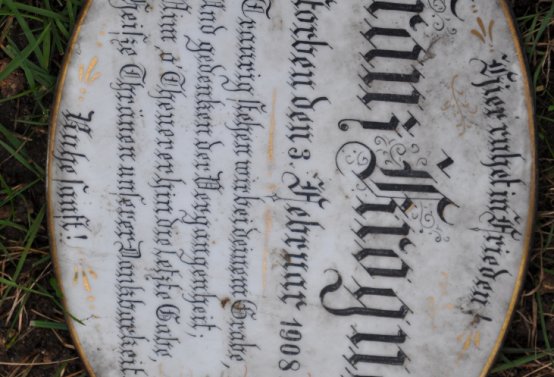 Hier ruhet in Frieden!
Krog
torben den 3. Februar 1908
Traurig stehen wir bei deinem Grabe,
Und gedenken der Vergangenheit;
Nim̄ o Theurer hin die letzte Gabe,
Heiße Thränen unserer Dankbarkeit
Ruhe sanft!